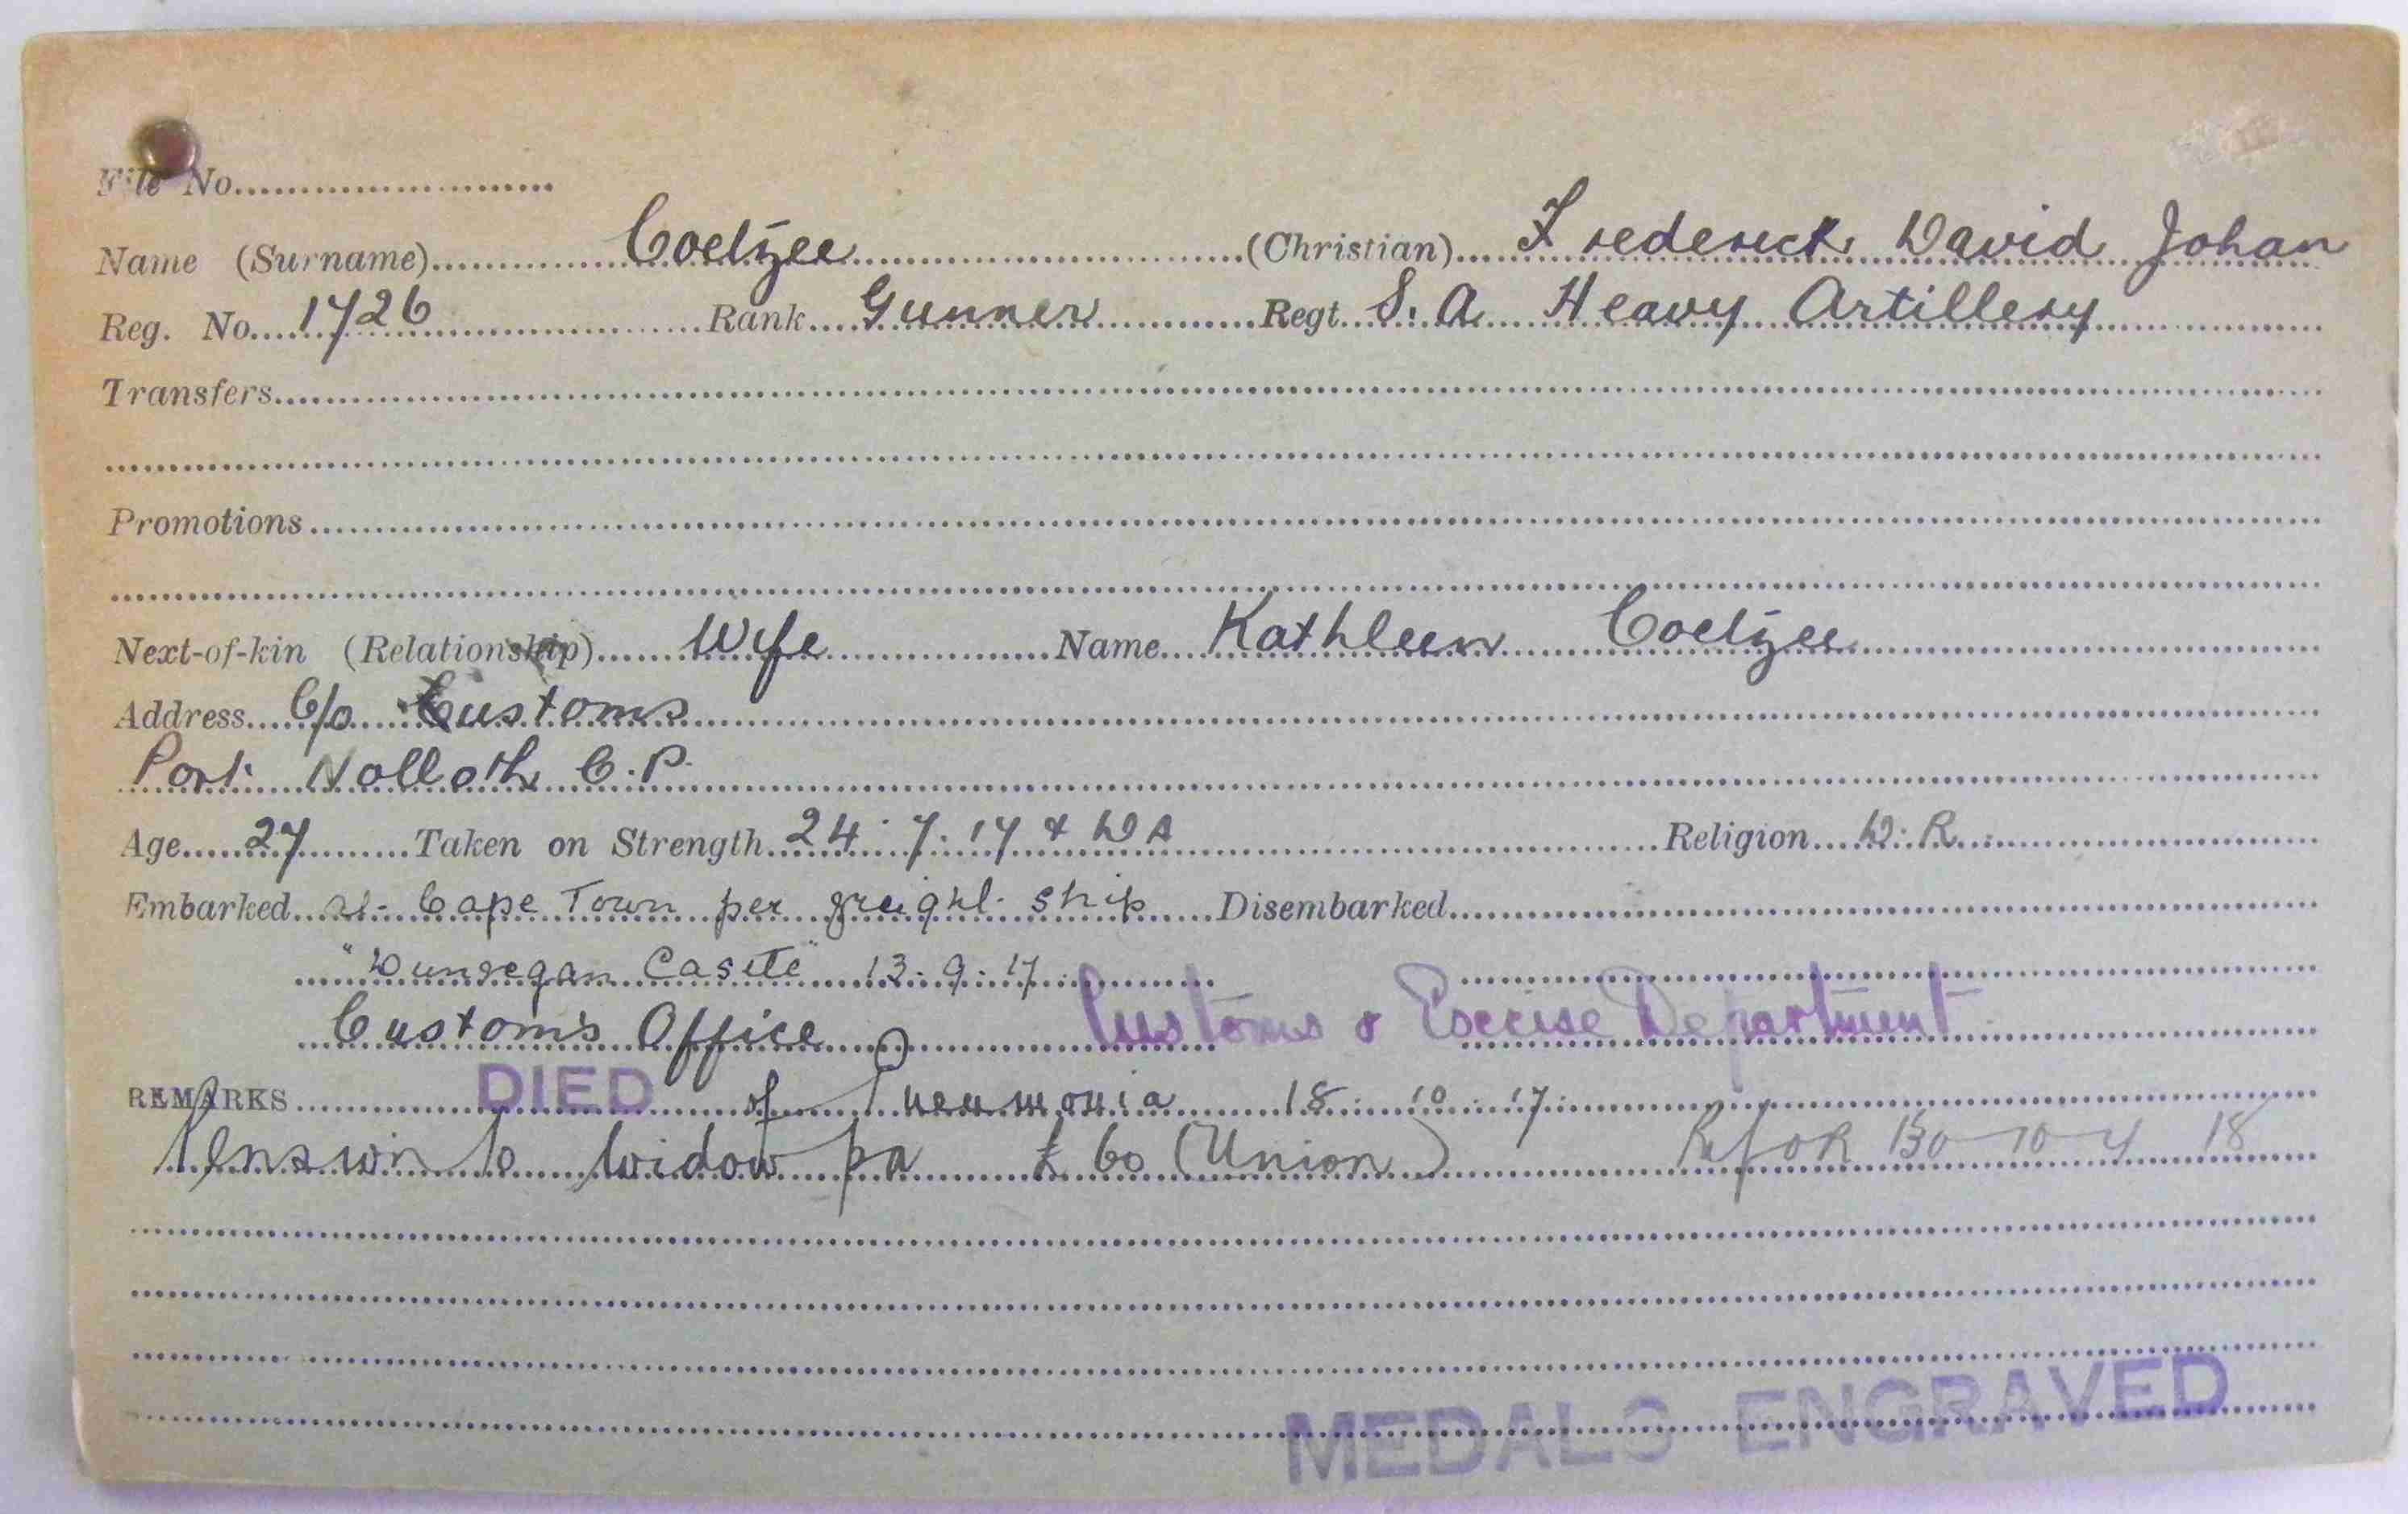 File No.
Name (Surname) Coetzee (Christian) Frederick David Johan
Reg. No. 1726 Rank Gunner Regt. S.A. Heavy Artillery
Transfers
Promotions
Next-of-kin (Relationship) Wife Name Kathleen Coetzee
Address C/o Customs
Port Nolloth C.P.
Age 27 Taken on Strength 24.7.17 & DA Religion D.R.
Embarked at Cape Town per freight ship Disembarked
"Dunvegan Castle" 13.9.17
Customs Office Customs & Excise Department
REMARKS DIED of Pneumonia 18.10.17
Pension to Widow pa £60 (Union) Ref OR 130 10-4 18
MEDALS ENGRAVED